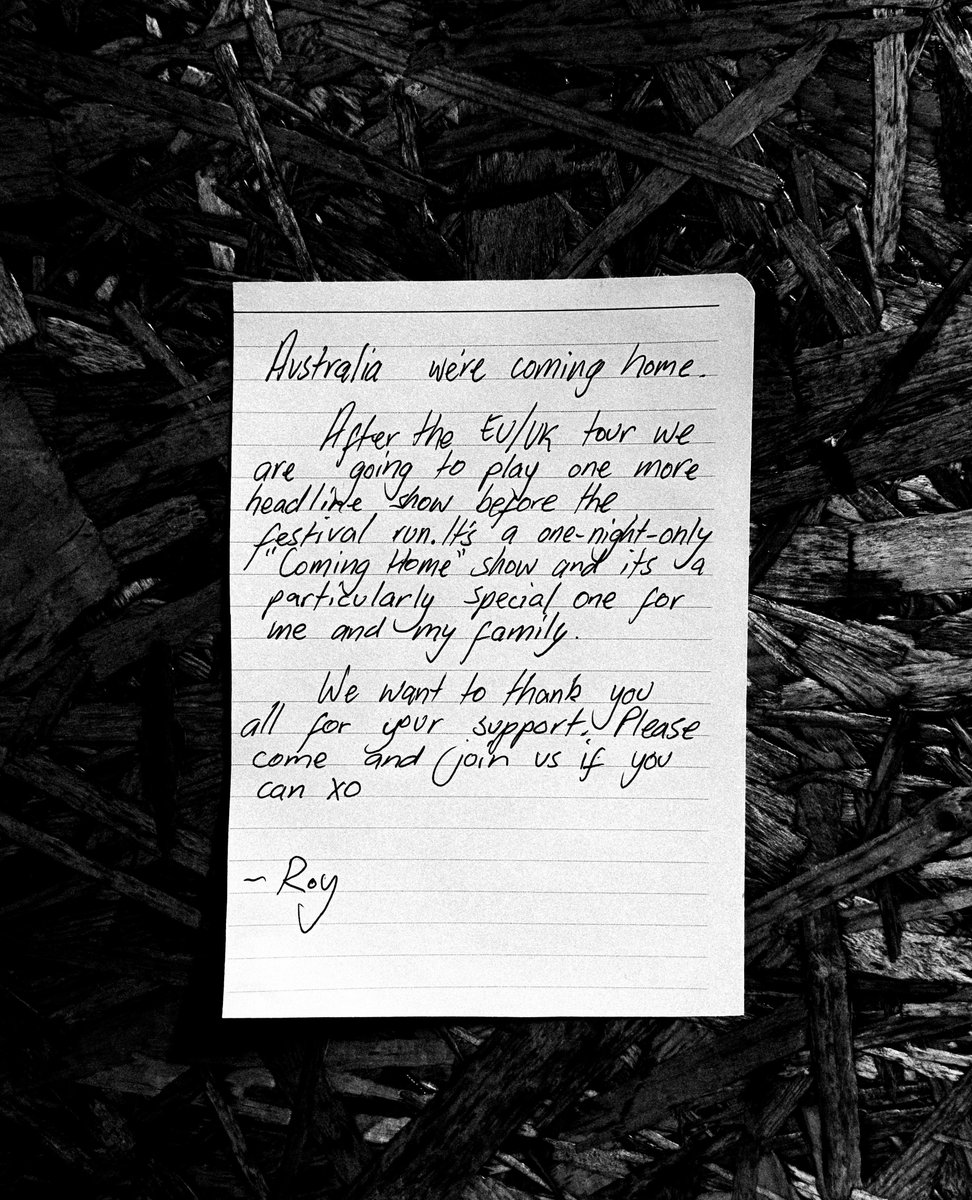 Australia we're coming home.
After the EU/UK tour we
are going to play one more
headline show before the
festival run. It's a one-night-only
"Coming Home" show and its a
particularly special one for
me and my family.
We want to thank you
all for your support. Please
come and join us if you
can xo
~ Roy